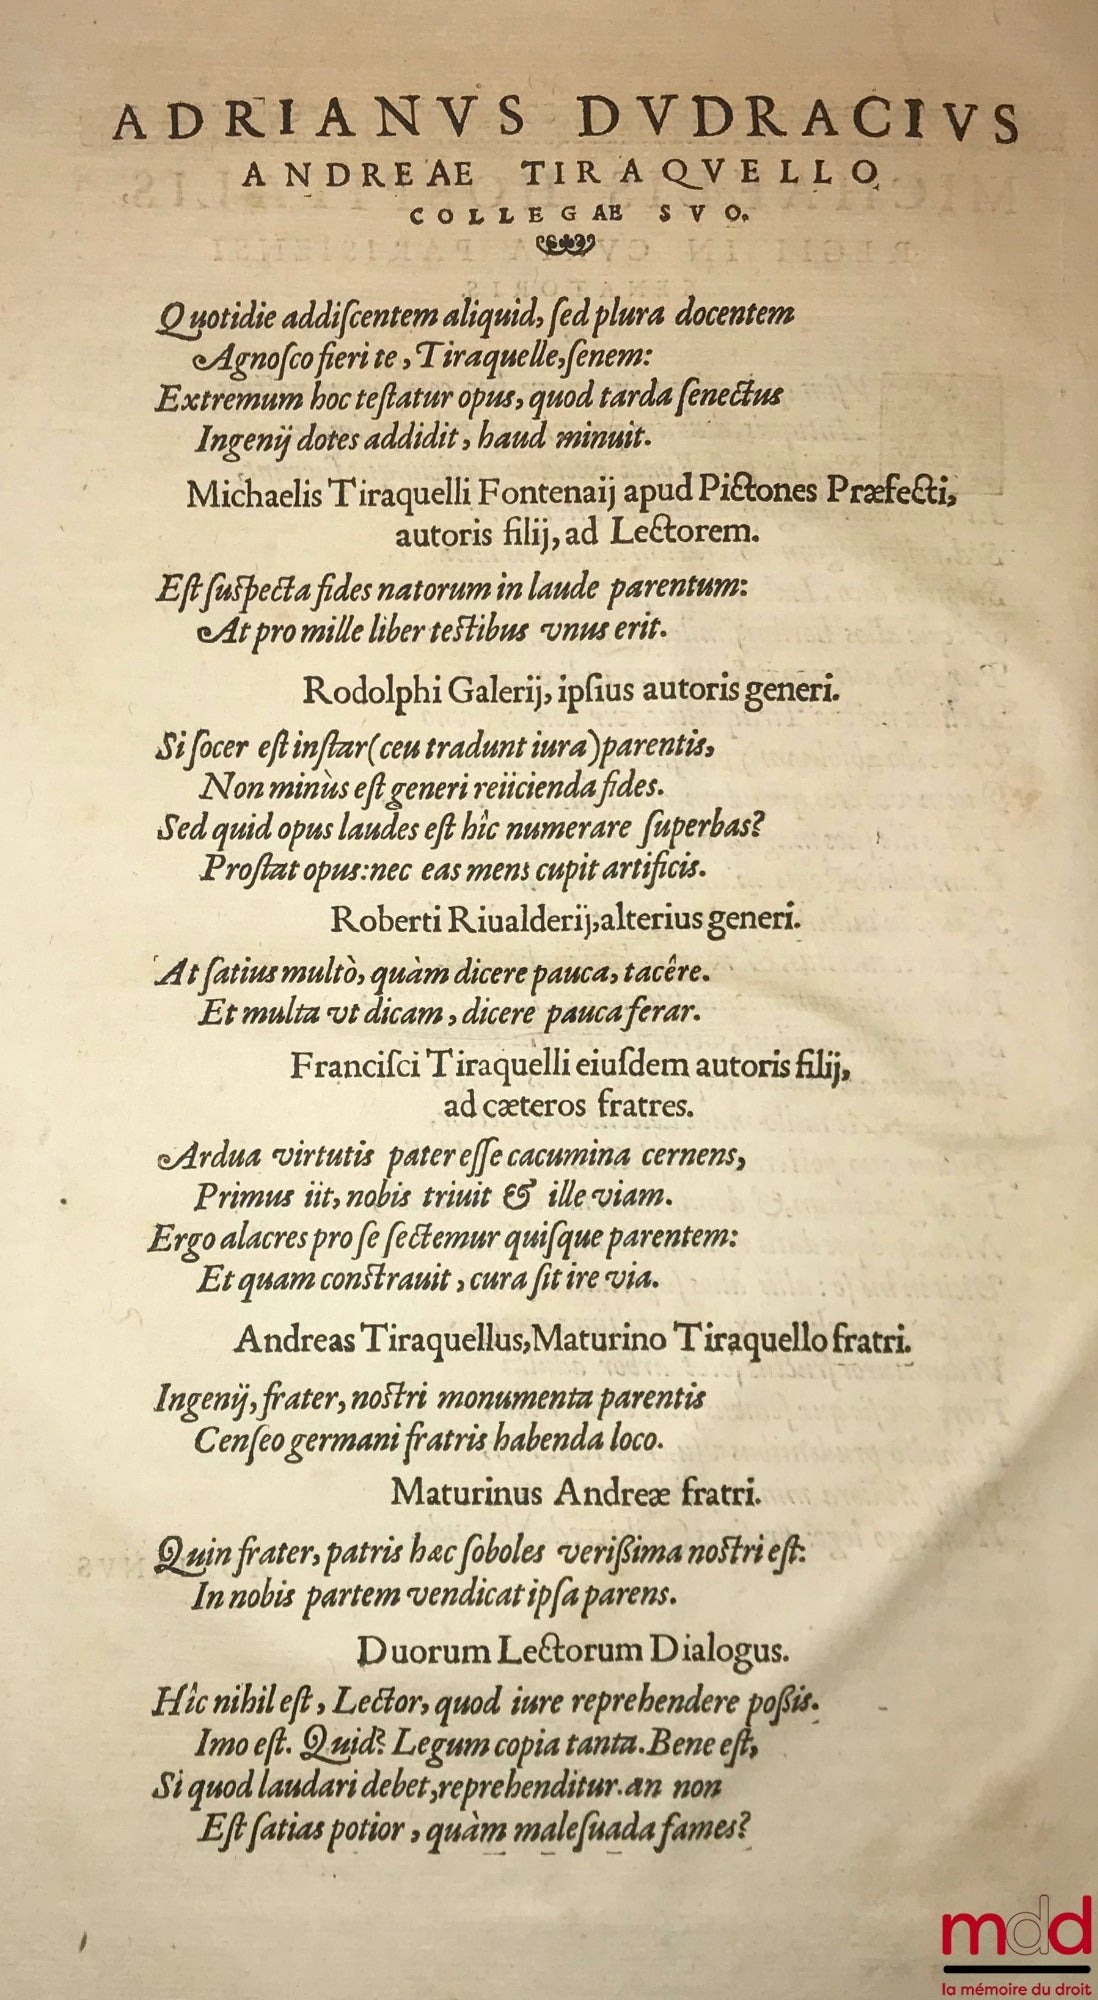 ADRIANVS DVDRACIVS
ANDREAE TIRAQVELLO
COLLEGAE SVO.
Quotidie addiſcentem aliquid, ſed plura docentem
Agnoſco fieri te, Tiraquelle, ſenem:
Extremum hoc teſtatur opus, quod tarda ſenectus
Ingenij dotes addidit, haud minuit.
Michaelis Tiraquelli Fontenaij apud Pictones Præfecti,
autoris filij, ad Lectorem.
Eſt ſuſpecta fides natorum in laude parentum:
At pro mille liber teſtibus vnus erit.
Rodolphi Galerij, ipſius autoris generi.
Si ſocer eſt inſtar (ceu tradunt iura) parentis,
Non minùs eſt generi reiicienda fides.
Sed quid opus laudes eſt hîc numerare ſuperbas?
Proſtat opus: nec eas mens cupit artificis.
Roberti Riualderij, alterius generi.
At ſatius multò, quàm dicere pauca, tacêre.
Et multa vt dicam, dicere pauca ferar.
Franciſci Tiraquelli eiuſdem autoris filij,
ad cæteros fratres.
Ardua virtutis pater eſſe cacumina cernens,
Primus iit, nobis triuit & ille viam.
Ergo alacres pro ſe ſectemur quiſque parentem:
Et quam conſtrauit, cura ſit ire via.
Andreas Tiraquellus, Maturino Tiraquello fratri.
Ingenij, frater, noſtri monumenta parentis
Cenſeo germani fratris habenda loco.
Maturinus Andreæ fratri.
Quin frater, patris hæc ſoboles verißima noſtri eſt:
In nobis partem vendicat ipſa parens.
Duorum Lectorum Dialogus.
Hîc nihil eſt, Lector, quod iure reprehendere poßis.
Imo eſt. Quid? Legum copia tanta. Bene eſt,
Si quod laudari debet, reprehenditur. an non
Eſt ſatias potior, quàm maleſuada fames?
mdd
la mémoire du droit